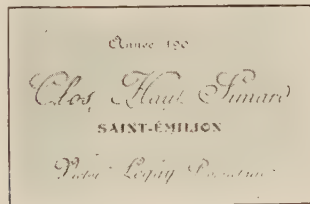 Année 190
Clos, Haut Simard
SAINT-ÉMILION
Victor Légly